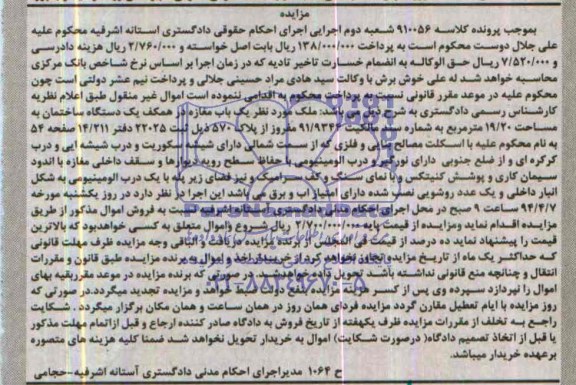 مزایده
بموجب پرونده کلاسه ۹۱۰۰۵۶ شعبه دوم اجرایی اجرای احکام حقوقی دادگستری استانه اشرفیه محکوم علیه
علی جلال دوست محکوم است به پرداخت ۱۳۸/۰۰۰/۰۰۰ ریال بابت اصل خواسته و ۲/۷۶۰/۰۰۰ ریال هزینه دادرسی
و ۷/۵۲۰/۰۰۰ ریال حق الوکاله به انضمام خسارت تاخیر تادیه که در زمان اجرا بر اساس نرخ شاخص بانک مرکزی
محاسبه خواهد شد له علی خوش برش با وکالت سید هادی مراد حسینی جلالی و پرداخت نیم عشر دولتی است چون
محکوم علیه در موعد مقرر قانونی نسبت به پرداخت محکوم به اقدامی ننموده است اموال غیر منقول طبق اعلام نظریه
کارشناس رسمی دادگستری به شرح ذیل می باشد: ملک مورد نظر یک باب مغازه در همکف یک دستگاه ساختمان به
مساحت ۱۹/۲۰ مترمربع به شماره سند مالکیت ۹۱/۹۳۴۶ مفروز از پلاک ۵۷۰ ذیل ثبت ۲۲۰۲۵ دفتر ۱۴/۲۱۱ صفحه ۵۴
به نام محکوم علیه با اسکلت مصالح بنایی و فلزی که از سمت شمالی دارای شیشه سکوریت و درب شیشه ایی و درب
کرکره ای و از ضلع جنوبی دارای نورگیر و درب الومینیومی با حفاظ سطح رویه دیوارها و سقف داخلی مغازه با اندود
سیمان کاری و پوشش کنیتکس و با نمای سنگ و کف سرامیک و نیز فضای زیر پله با یک درب الومینیومی به شکل
انبار داخلی و یک عدد روشویی نصب شده دارای امتیاز اب و برق می باشد این اجرا در نظر دارد در روز یکشنبه مورخه
۹۴/۴/۷ ساعت ۹ صبح در محل اجرای احکام مدنی دادگستری استانه اشرفیه نسبت به فروش اموال مذکور از طریق
مزایده اقدام نماید ومزایده از قیمت پایه ۲/۷۶۰/۰۰۰/۰۰۰ ریال شروع واموال متعلق به کسی خواهدبود که بالاترین
قیمت را پیشنهاد نماید ده درصد از قیمت فی المجلس از برنده مزایده دریافت و الباقی وجه مزایده ظرف مهلت قانونی
که حداکثر یک ماه از تاریخ مزایده تجاوز نخواهد کرد از خریدار اخذ و اموال به برنده مزایده طبق قانون و مقررات
انتقال و چنانچه منع قانونی نداشته باشد تحویل داده خواهدشد. در صورتی که برنده مزایده در موعد مقرربقیه بهای
اموال را نپردازد سپرده وی پس از کسر هزینه مزایده بنفع دولت ضبط خواهد و مزایده تجدید میگردد.در صورتی که
روز مزایده با ایام تعطیل مقارن گردد مزایده فردای همان روز در همان ساعت و همان مکان برگزار میگردد . شکایت
راجع به تخلف از مقررات مزایده ظرف یکهفته از تاریخ فروش به دادگاه صادر کننده ارجاع و قبل ازاتمام مهلت مذکور
یا قبل از اتخاذ تصمیم دادگاه( درصورت شکایت) اموال به خریدار تحویل نخواهد شد ضمنا کلیه هزینه های متصوره
برعهده خریدار میباشد.
ح ۱۰۶۴ مدیراجرای احکام مدنی دادگستری آستانه اشرفیه-حجامی